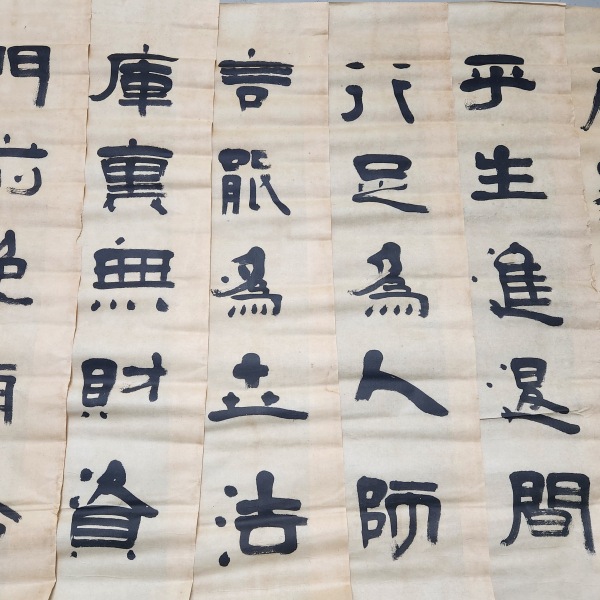 平生進退間
行足為人師
言能為立法
庫裏無財資
門前絕